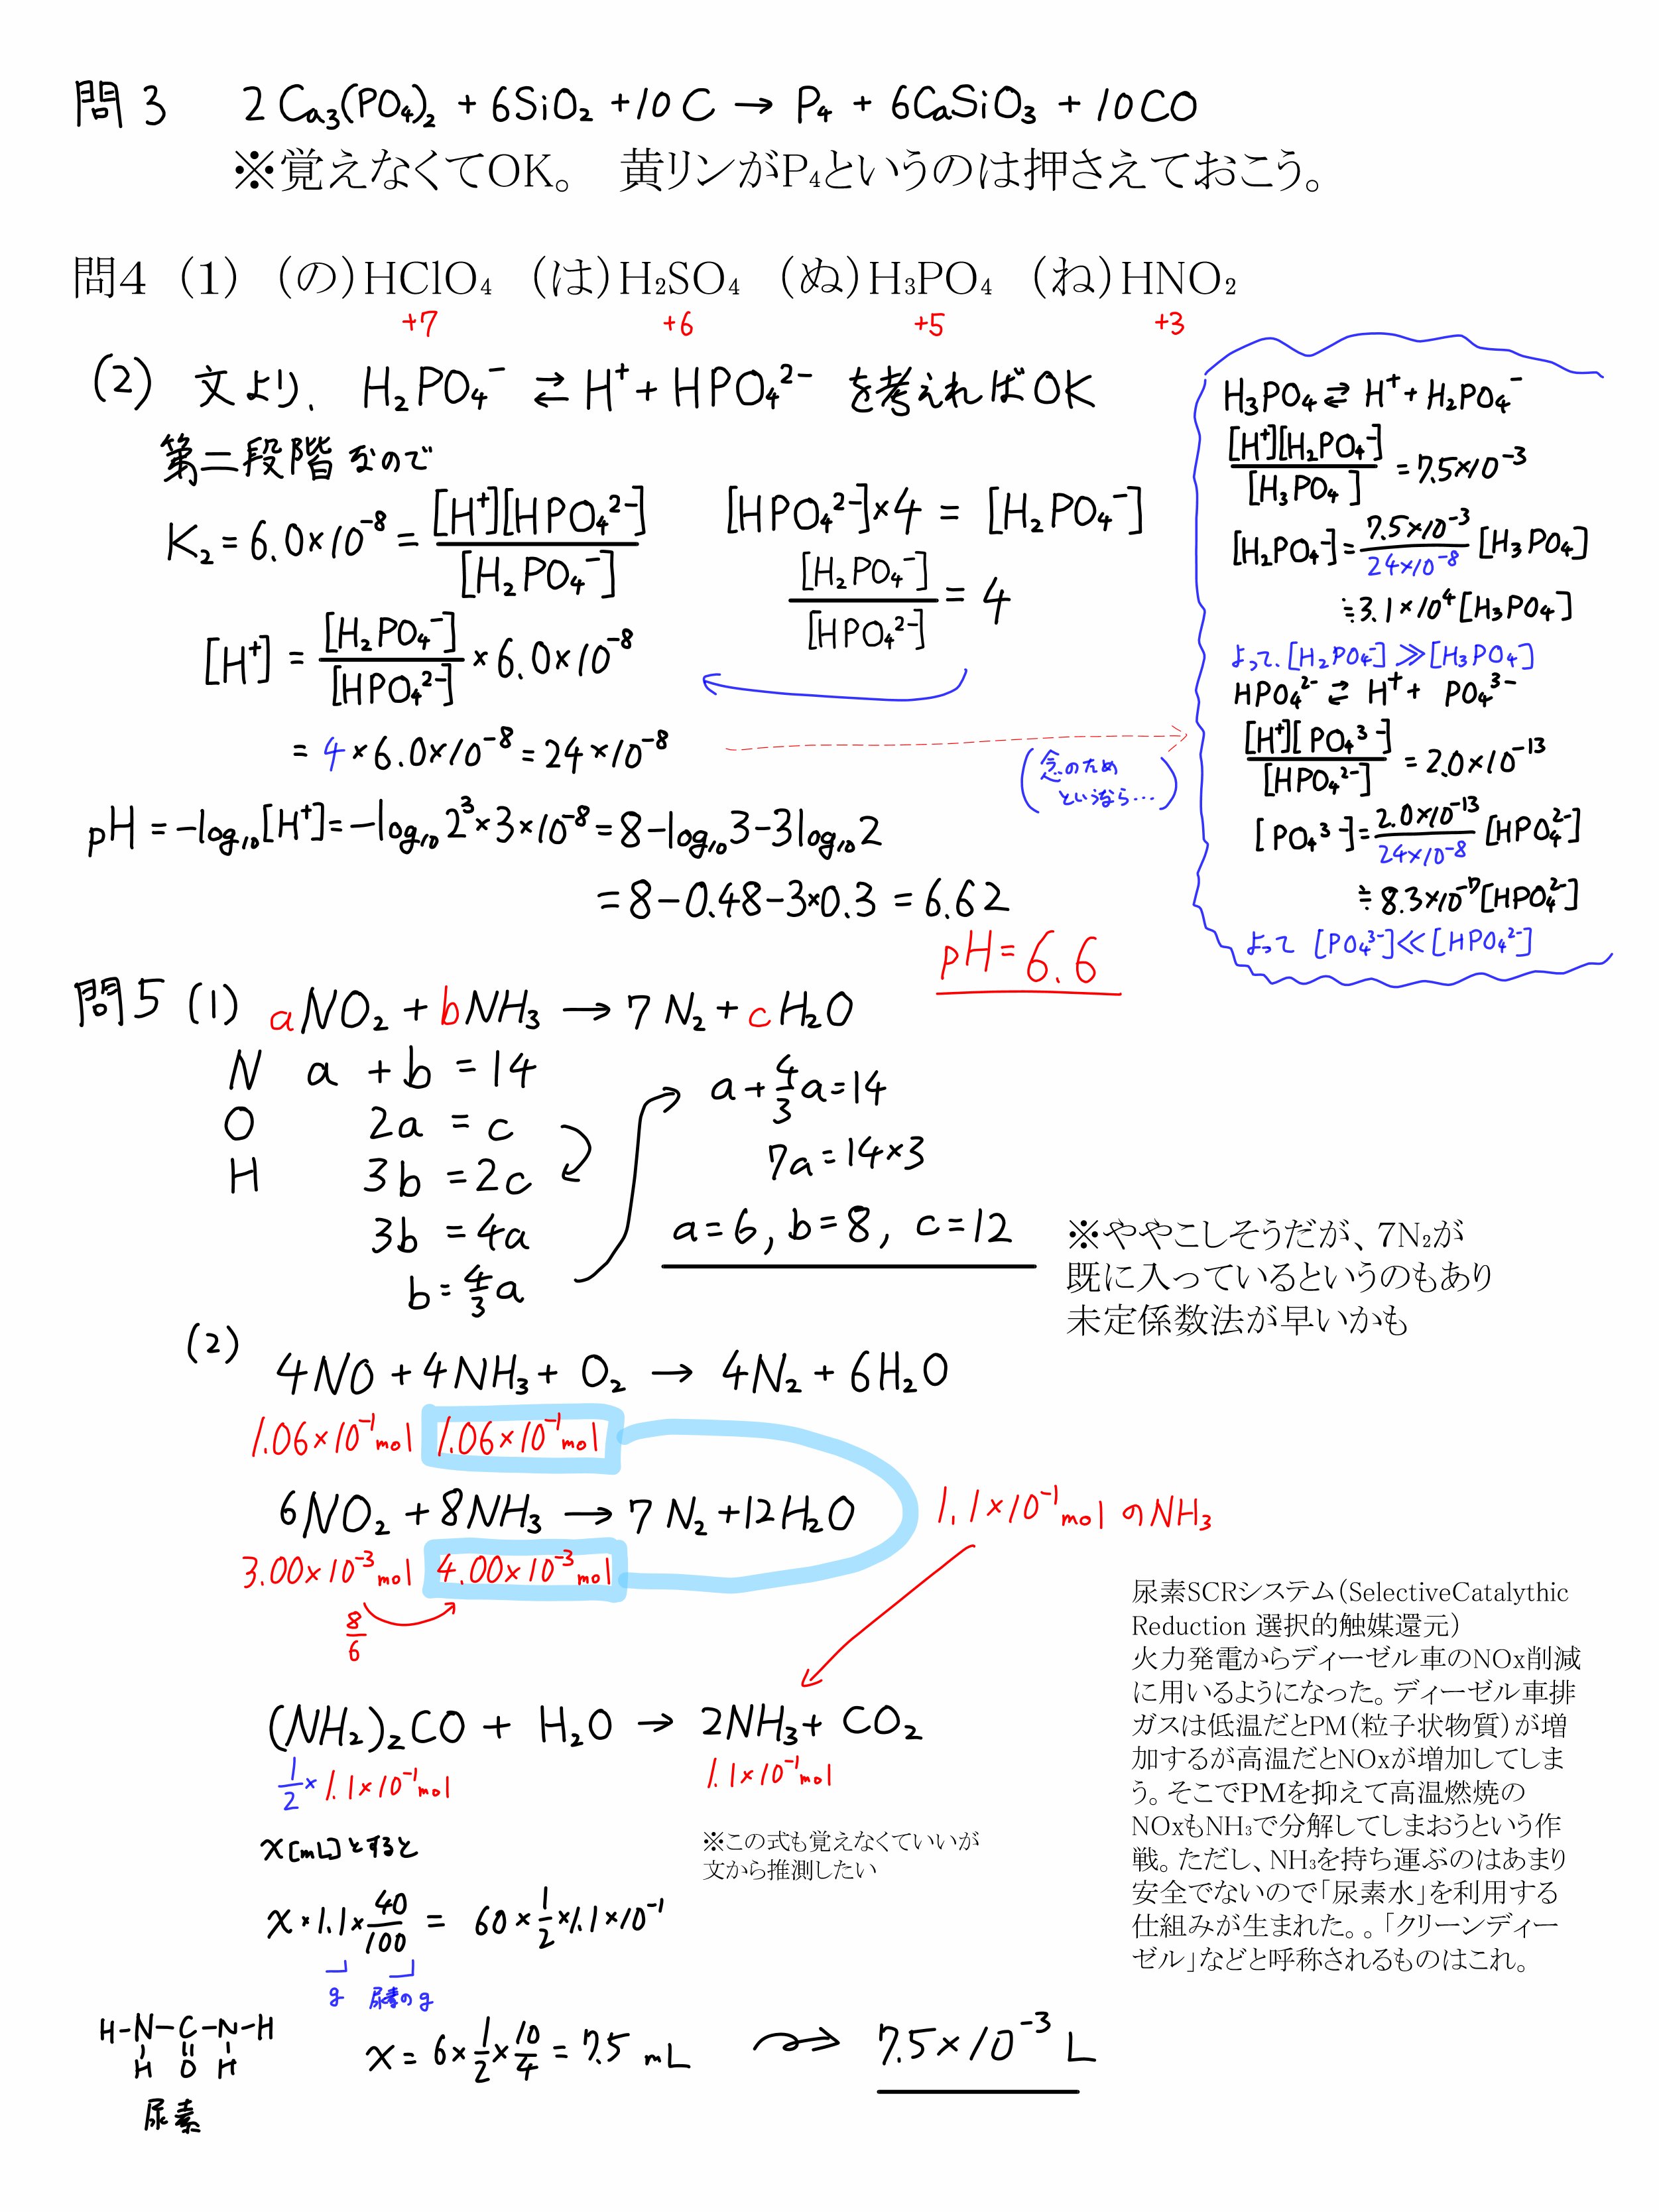 問3 2Ca₃(PO₄)₂ + 6SiO₂ + 10C → P₄ + 6CaSiO₃ + 10CO
※覚えなくてOK。 黄リンがP₄というのは押さえておこう。
問4 (1) (の)HClO₄ (は)H₂SO₄ (ぬ)H₃PO₄ (ね)HNO₂
+7 +6 +5 +3
(2) 文より、 H₂PO₄⁻ ⇄ H⁺ + HPO₄²⁻ を考えればOK
第二段階なので
K₂ = 6.0×10⁻⁸ = [H⁺][HPO₄²⁻]/[H₂PO₄⁻]
[HPO₄²⁻]×4 = [H₂PO₄⁻]
[H₂PO₄⁻]/[HPO₄²⁻] = 4
[H⁺] = [H₂PO₄⁻]/[HPO₄²⁻] × 6.0×10⁻⁸
= 4×6.0×10⁻⁸ = 24×10⁻⁸
(念のため
というなら…)
pH = -log₁₀[H⁺] = -log₁₀ 2³×3×10⁻⁸ = 8-log₁₀3-3log₁₀2
= 8-0.48-3×0.3 = 6.62
pH = 6.6
H₃PO₄ ⇄ H⁺ + H₂PO₄⁻
[H⁺][H₂PO₄⁻]/[H₃PO₄] = 7.5×10⁻³
[H₂PO₄⁻] = 7.5×10⁻³/24×10⁻⁸ [H₃PO₄]
≒ 3.1×10⁴ [H₃PO₄]
よって、[H₂PO₄⁻] ≫ [H₃PO₄]
HPO₄²⁻ ⇄ H⁺ + PO₄³⁻
[H⁺][PO₄³⁻]/[HPO₄²⁻] = 2.0×10⁻¹³
[PO₄³⁻] = 2.0×10⁻¹³/24×10⁻⁸ [HPO₄²⁻]
≒ 8.3×10⁻⁷ [HPO₄²⁻]
よって [PO₄³⁻] ≪ [HPO₄²⁻]
問5 (1) aNO₂ + bNH₃ → 7N₂ + cH₂O
N a + b = 14
O 2a = c
H 3b = 2c
3b = 4a
b = 4/3 a
a + 4/3 a = 14
7a = 14×3
a = 6, b = 8, c = 12
※ややこしそうだが、7N₂が
既に入っているというのもあり
未定係数法が早いかも
(2)
4NO + 4NH₃ + O₂ → 4N₂ + 6H₂O
1.06×10⁻¹mol 1.06×10⁻¹mol
6NO₂ + 8NH₃ → 7N₂ + 12H₂O
1.1×10⁻¹mol のNH₃
3.00×10⁻³mol 4.00×10⁻³mol
8/6
(NH₂)₂CO + H₂O → 2NH₃ + CO₂
1/2 × 1.1×10⁻¹mol 1.1×10⁻¹mol
x[mL]とすると
※この式も覚えなくていいが
文から推測したい
x × 1.1 × 40/100 = 60 × 1/2 × 1.1×10⁻¹
g 尿素のg
x = 6 × 1/2 × 10/4 = 7.5 mL
7.5×10⁻³ L
H-N-C-N-H
H O H
尿素
尿素SCRシステム(SelectiveCatalythic
Reduction 選択的触媒還元)
火力発電からディーゼル車のNOx削減
に用いるようになった。ディーゼル車排
ガスは低温だとPM(粒子状物質)が増
加するが高温だとNOxが増加してしま
う。そこでPMを抑えて高温燃焼の
NOxもNH₃で分解してしまおうという作
戦。ただし、NH₃を持ち運ぶのはあまり
安全でないので「尿素水」を利用する
仕組みが生まれた。。「クリーンディー
ゼル」などと呼称されるものはこれ。